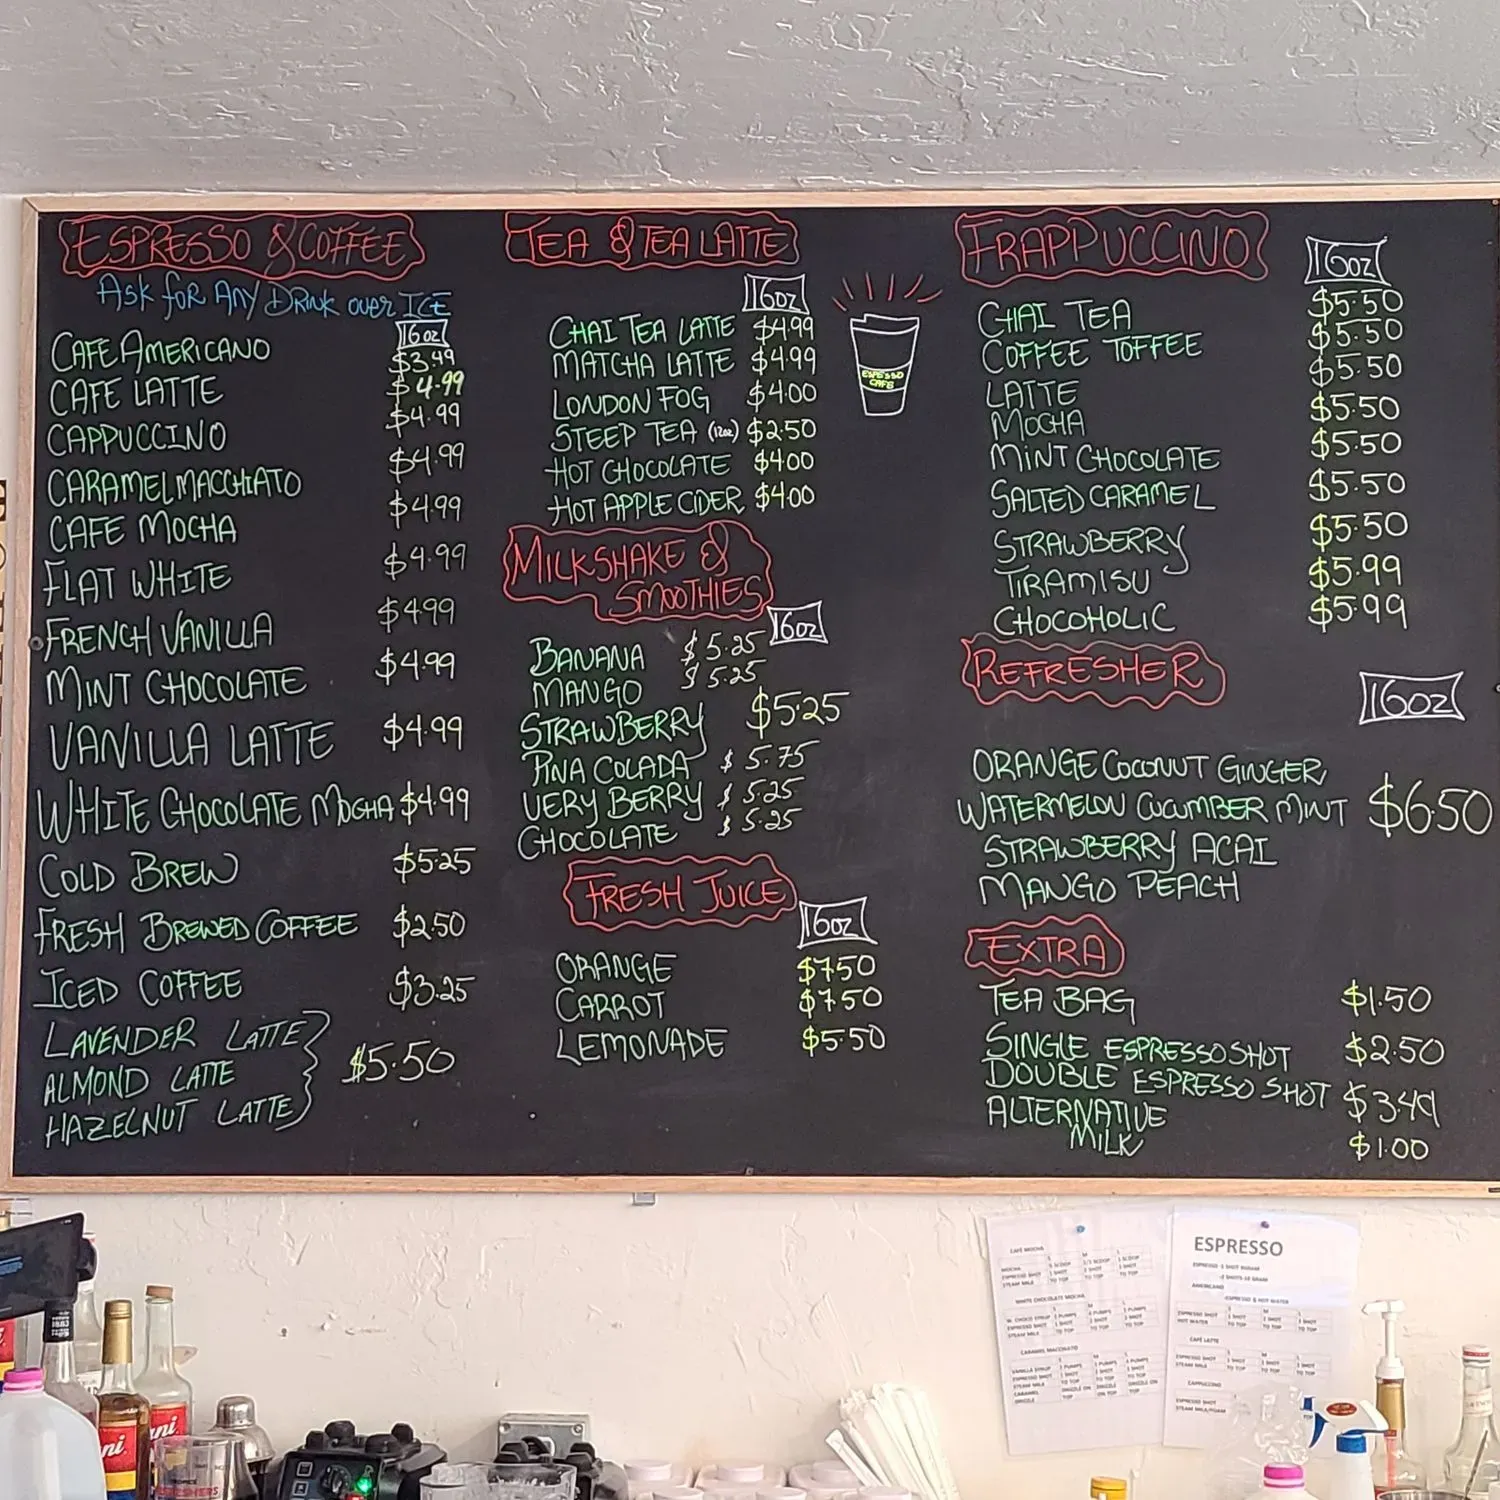 ESPRESSO & COFFEE
ASK FOR ANY DRINK OVER ICE
16oz
CAFE AMERICANO $3.49
CAFE LATTE $4.99
CAPPUCCINO $4.99
CARAMEL MACCHIATO $4.99
CAFE MOCHA $4.99
FLAT WHITE $4.99
FRENCH VANILLA $4.99
MINT CHOCOLATE $4.99
VANILLA LATTE $4.99
WHITE CHOCOLATE MOCHA $4.99
COLD BREW $5.25
FRESH BREWED COFFEE $2.50
ICED COFFEE $3.25
LAVENDER LATTE
ALMOND LATTE $5.50
HAZELNUT LATTE
TEA & TEA LATTE
16oz
CHAI TEA LATTE $4.99
MATCHA LATTE $4.99
LONDON FOG $4.00
STEEP TEA (12oz) $2.50
HOT CHOCOLATE $4.00
HOT APPLE CIDER $4.00
ESPRESSO
CAFE
MILKSHAKE &
SMOOTHIES
16oz
BANANA $5.25
MANGO $5.25
STRAWBERRY $5.25
PINA COLADA $5.75
VERY BERRY $5.25
CHOCOLATE $5.25
FRESH JUICE
16oz
ORANGE $7.50
CARROT $7.50
LEMONADE $5.50
FRAPPUCCINO
16oz
CHAI TEA $5.50
COFFEE TOFFEE $5.50
LATTE $5.50
MOCHA $5.50
MINT CHOCOLATE $5.50
SALTED CARAMEL $5.50
STRAWBERRY $5.50
TIRAMISU $5.99
CHOCOHOLIC $5.99
REFRESHER
16oz
ORANGE COCONUT GINGER
WATERMELON CUCUMBER MINT $6.50
STRAWBERRY ACAI
MANGO PEACH
EXTRA
TEA BAG $1.50
SINGLE ESPRESSO SHOT $2.50
DOUBLE ESPRESSO SHOT $3.49
ALTERNATIVE
MILK $1.00
CAFÉ MOCHA
WHITE CHOCOLATE MOCHA
ESPRESSO
AMERICANO
CAFÉ LATTE
CAPPUCCINO